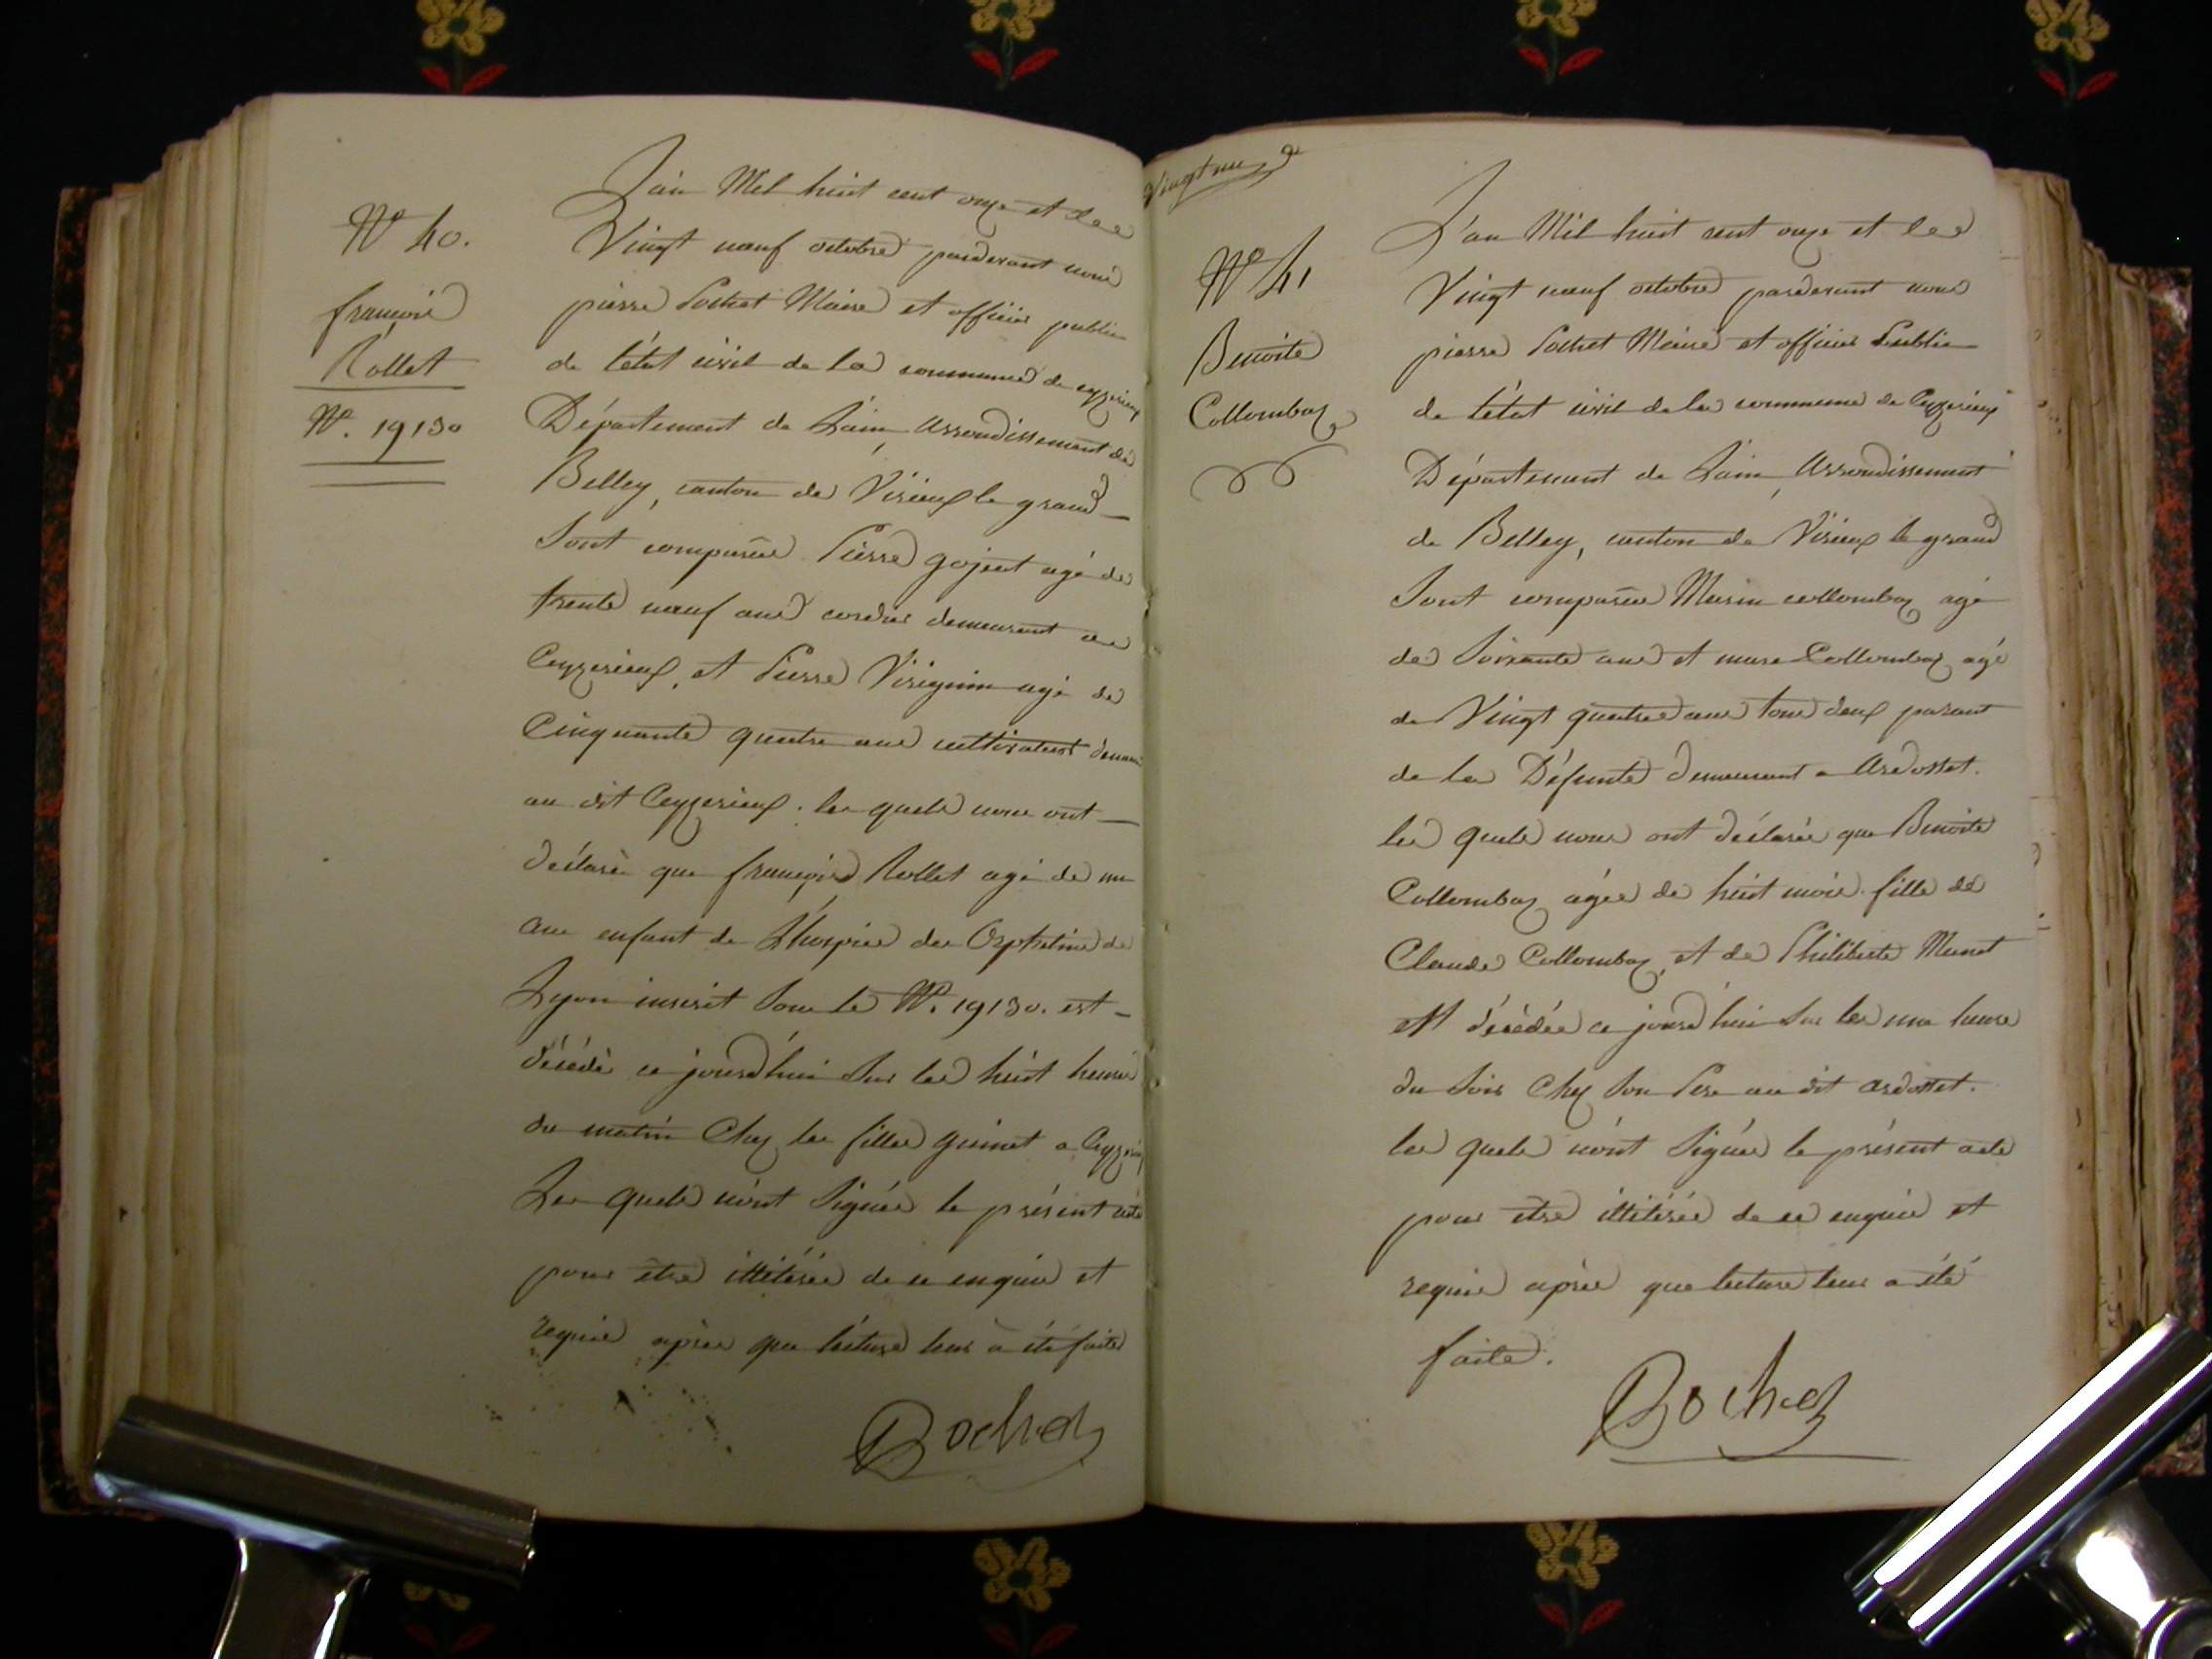 N° 40.
françois
Rollet
N°. 19130
L'an Mil huit cent onze et le
Vingt neuf octobre pardevant nous
pierre Pochet Maire et officier public
de l'état civil de la commune de ceyzerieux
Département de L'ain, Arrondissement de
Belley, canton de Virieux le grand
Sont comparus Pierre gojeut agé de
trente neuf ans cordier demeurant a
Ceyzerieux, et Pierre Virignin agé de
Cinquante quatre ans cultivateur
au dit Ceyzerieux. les quels nous ont
déclaré que françois Rollet agé de un
ans enfant de L'hospice des Orphelins de
Lyon inscrit Sous le N°. 19130. est
décédé ce jourd'hui Sur les huit heures
du matin Chez les filles guinet a
Les quels n'ont Signés le présent acte
pour être illitérés de ce enquis et
requis après que lecture leur a été faite
Bochet
Vingt un
N° 41
Benoite
Collombaz
L'an Mil huit cent onze et le
Vingt neuf octobre pardevant nous
pierre Pochet Maire et officier Public
de l'état civil de la commune de Ceyzerieux
Département de L'ain, Arrondissement
de Belley, canton de Virieux le grand
Sont comparus Marin collombaz agé
de Soixante ans et marc Collombaz agé
de Vingt quatre ans tous deux parant
de la Défunte demeurant a Ardosset.
les quels nous ont déclarés que Benoite
Collombaz agée de huit mois fille de
Claude Collombaz, et de Philiberte Munet
est décédée ce jourd'hui Sur les une heure
du Soir Chez Son Pere au dit ardosset.
les quels n'ont Signés le présent acte
pour être illitérés de ce enquis et
requis après que lecture leur a été
faite.
Bochet